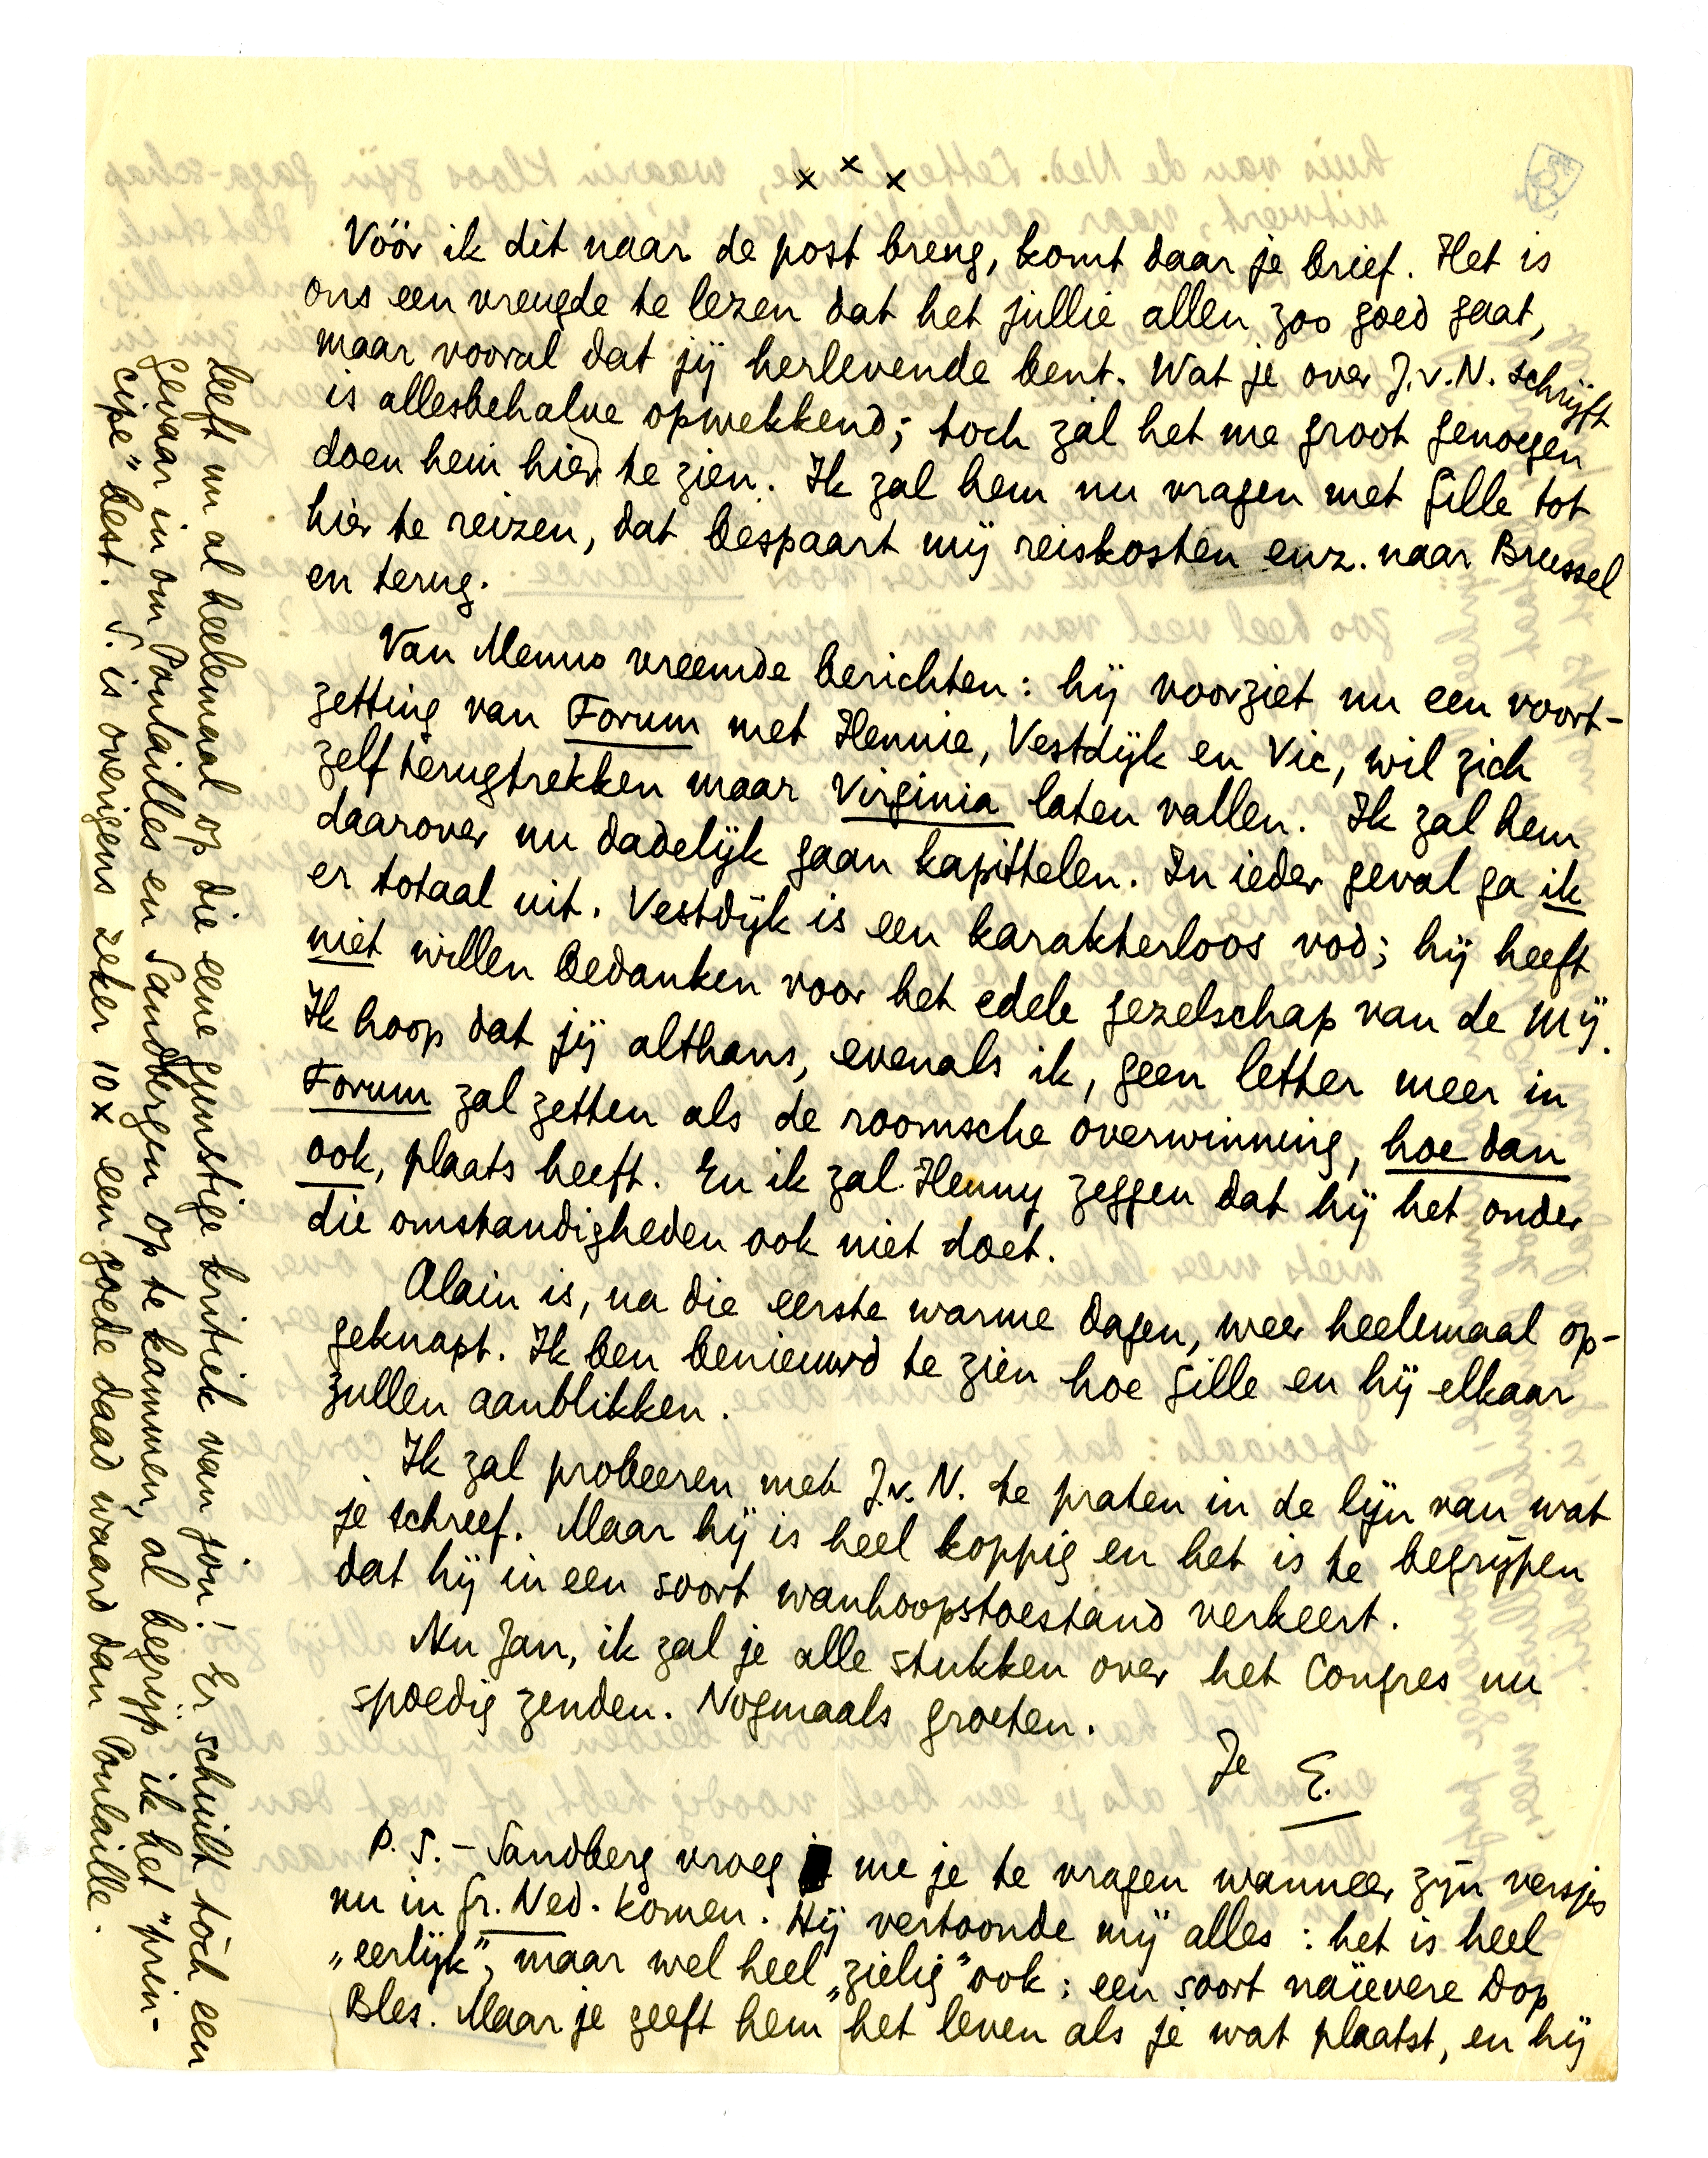 x x x
Vóór ik dit naar de post breng, komt daar je brief. Het is
ons een vreugde te lezen dat het jullie allen zoo goed gaat,
maar vooral dat jij herlevende bent. Wat je over J.v.N. schrijft
is allesbehalve opwekkend; toch zal het me groot genoegen
doen hem hier te zien. Ik zal hem nu vragen met Gille tot
hier te reizen, dat bespaart mij reiskosten enz. naar Brussel
en terug.
Van Menno vreemde berichten: hij voorziet nu een voort-
zetting van Forum met Hennie, Vestdijk en Vic, wil zich
zelf terugtrekken maar Virginia laten vallen. Ik zal hem
daarover nu dadelijk gaan kapittelen. In ieder geval ga ik
er totaal uit. Vestdijk is een karakterloos vod; hij heeft
niet willen bedanken voor het edele gezelschap van de Mij.
Ik hoop dat jij althans, evenals ik, geen letter meer in
Forum zal zetten als de roomsche overwinning, hoe dan
ook, plaats heeft. En ik zal Henny zeggen dat hij het onder
die omstandigheden ook niet doet.
Alain is, na die eerste warme dagen, weer heelemaal op-
geknapt. Ik ben benieuwd te zien hoe Gille en hij elkaar
zullen aanblikken.
Ik zal probeeren met J.v.N. te praten in de lijn van wat
je schreef. Maar hij is heel koppig en het is te begrijpen
dat hij in een soort wanhoopstoestand verkeert.
Nu Jan, ik zal je alle stukken over het Congres nu
spoedig zenden. Nogmaals groeten.
Je E.
P.S. - Sandberg vroeg me je te vragen wanneer zijn versjes
nu in Gr. Ned. komen. Hij vertoonde mij alles: het is heel
„eerlijk", maar wel heel „zielig" ook: een soort naïevere Dop
Bles. Maar je geeft hem het leven als je wat plaatst, en hij
leeft nu al heelemaal op die eene gunstige kritiek van jou! Er schuilt tóch een
gevaar in om Poulailles en Sandbergen op te kammen, al begrijp ik het "prin-
cipe" best. S. is overigens zeker 10 x een goede daad waard dan Poulaille.